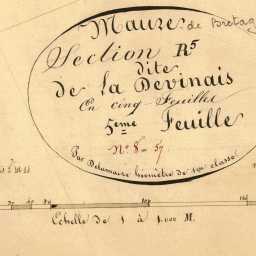 Maure de Bretag
Section R5
dite
de la Devinais
En cinq Feuilles
5eme Feuille
N° 8 = 57.
Par Delamaire Géomètre de 1ère classe
Echelle de 1 à 1.000 M.